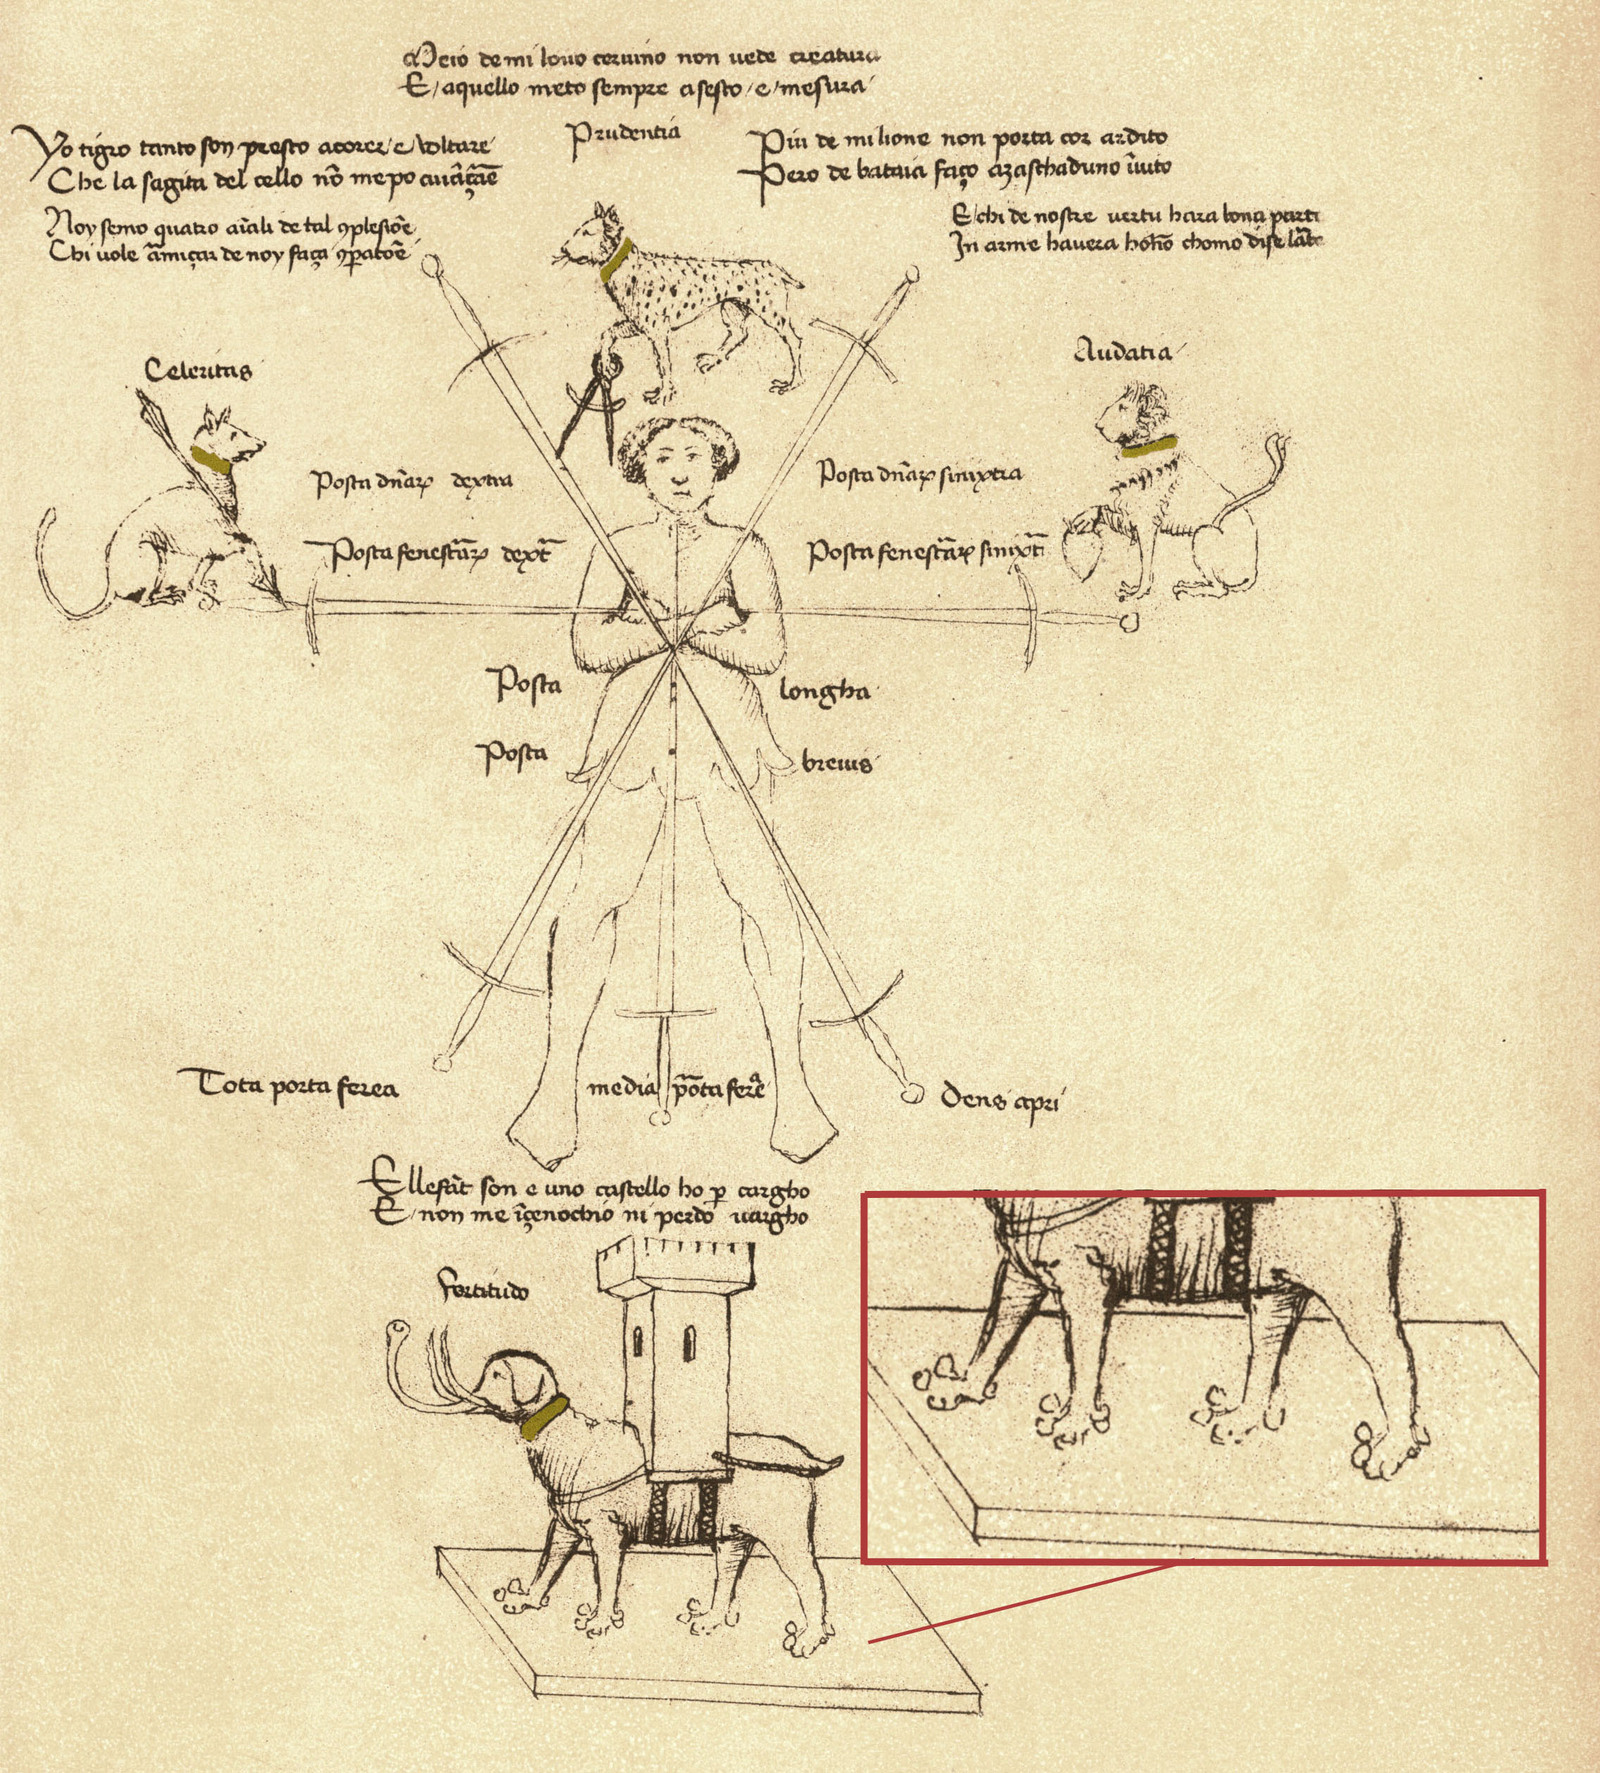 Meio de mi lovo cervino non vede creatura
E aquello meto sempre a sesto e mesura
Prudentia
Yo tigro tanto son presto acorer e voltare
Che la sagita del cello nō me po avāçare
Piu de mi lione non porta cor ardito
Pero de bataia faço azaschaduno īvito
Noy semo quatro aīali de tal ꝯplesiōe
Chi vole āmiçar de noy faça ꝯparatōe
E chi de nostre vertu hara bona parte
In arme havera honō chomo dise larte
Celeritas
Audatia
Posta dnār dextra
Posta dnār sinixtra
Posta fenestār dext
Posta fenestār sinixt
Posta longha
Posta breuis
Tota porta ferea
media pōta fere
Dens apri
Ellefāt son e uno castello ho p cargho
E non me īçenochio ni perdo vargho
fortitudo